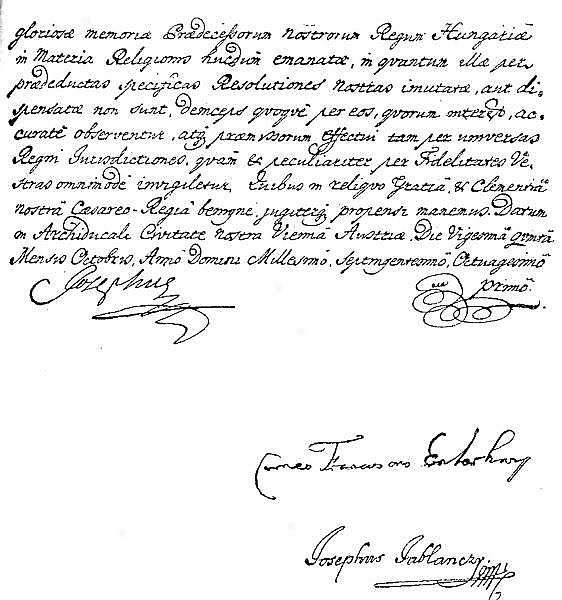 gloriosæ memoriæ Prædecessorum nostrorum Regum Hungariæ
in Materia Religionis hucdum emanatæ, in quantum illæ per
prædeductas specificas Resolutiones nostras imutatæ, aut di-
spensatæ non sunt, deinceps quoque per eos, quorum interest, ac-
curate observentur, atq præmissorum effectui tam per universas
Regni Jurisdictiones, quam & peculiariter per Fidelitates Ve-
stras omnimode invigiletur, Quibus in reliquo Gratia, & Clementia
nostra Cæsareo-Regia benigne jugiterq propensi manemus. Datum
in Archiducali Civitate nostra Vienna Austriæ, Die Vigesima quinta
Mensis Octobris, Anno Domini Millesimo, Septingentesimo, Octuagesimo
primo.
Josephus
Franciscus Eszterhazy
Josephus Jablanczy